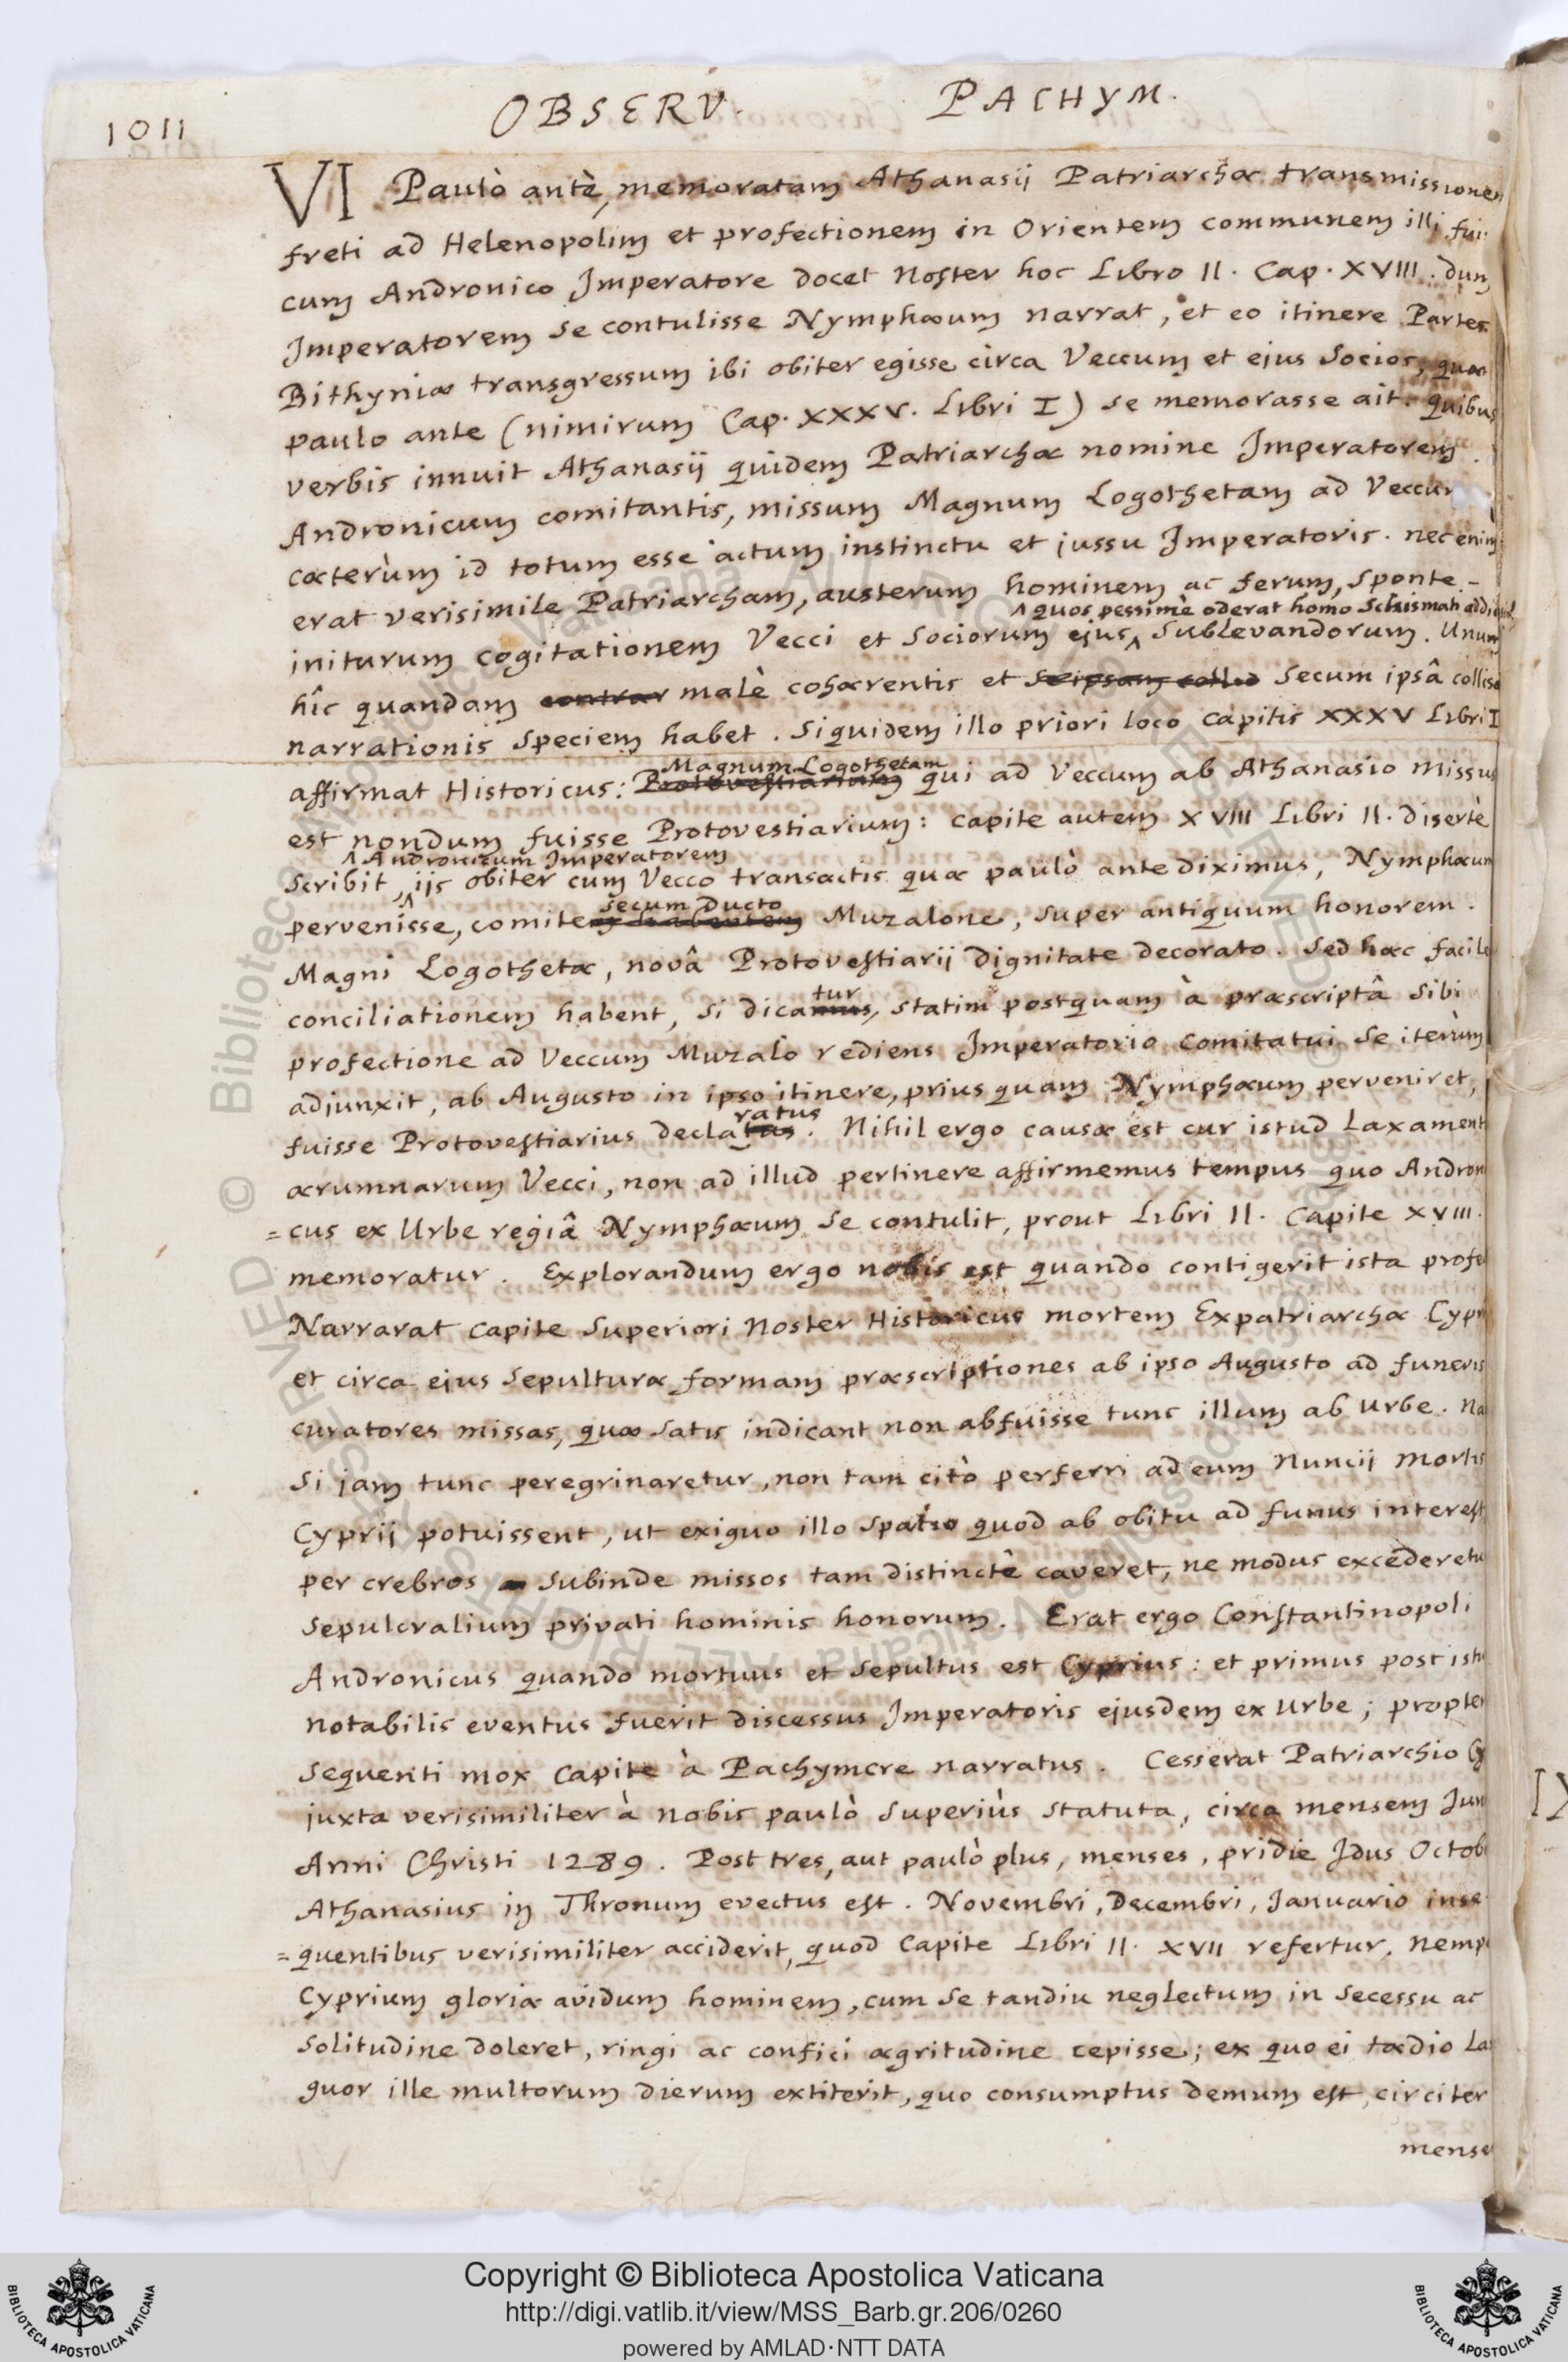 1011
OBSERV. PACHYM.
VI Paulò antè, memoratam Athanasii Patriarchæ transmissionem
freti ad Helenopolim et profectionem in Orientem communem illi fui
cum Andronico Imperatore docet Noster hoc Libro II. Cap. XVIII. dum
Imperatorem se contulisse Nymphæum narrat, et eo itinere Partes
Bithyniæ transgressum ibi obiter egisse circa Veccum et ejus socios, quæ
paulo ante (nimirum Cap. XXXV. Libri I) se memorasse ait. quibus
verbis innuit Athanasij quidem Patriarchæ nomine Imperatorem
Andronicum comitantis, missum Magnum Logothetam ad Veccum
cæterùm id totum esse actum instinctu et jussu Imperatoris. nec enim
erat verisimile Patriarcham, austerum hominem ac ferum, sponte
quos pessimè oderat homo Schismati
initurum cogitationem Vecci et sociorum ejus sublevandorum. Unum
hîc quandam contrar malè cohærentis et seipsam collid secum ipsâ collisæ
narrationis speciem habet. Siquidem illo priori loco capitis XXXV Libri I
Magnum Logothetam
affirmat Historicus: Protovestiarium qui ad Veccum ab Athanasio missus
est nondum fuisse Protovestiarium: capite autem XVIII Libri II. disertè
Andronicum Imperatorem
scribit, iis obiter cum Vecco transactis quæ paulò ante diximus, Nymphæum
secum ducto
pervenisse, comitem habentem Muzalone, super antiquum honorem
Magni Logothetæ, novâ Protovestiarii dignitate decorato. Sed hæc facile
tur
conciliationem habent, si dicamus, statim postquam à præscriptâ sibi
profectione ad Veccum Muzalo rediens Imperatorio comitatui se iterùm
adjunxit, ab Augusto in ipso itinere, priusquam Nymphæum perveniret,
ratus
fuisse Protovestiarius declatus. Nihil ergo causæ est cur istud Laxament
ærumnarum Vecci, non ad illud pertinere affirmemus tempus quo Androni
=cus ex Urbe regiâ Nymphæum se contulit, prout Libri II. Capite XVIII.
memoratur. Explorandum ergo nobis est quando contigerit ista profe
Narrarat capite superiori Noster Historicus mortem Expatriarchæ Cypri
et circa ejus sepulturæ formam præscriptiones ab ipso Augusto ad funeris
curatores missas, quæ satis indicant non abfuisse tunc illum ab Urbe. Na
si jam tunc peregrinaretur, non tam citò perferri ad eum Nuncii mortis
Cyprij potuissent, ut exiguo illo spatio quod ab obitu ad funus interest
per crebros subinde missos tam distinctè caveret, ne modus excederetu
sepulcralium privati hominis honorum. Erat ergo Constantinopoli
Andronicus quando mortuus et sepultus est Cyprius: et primus post isto
notabilis eventus fuerit discessus Imperatoris ejusdem ex Urbe; propter
sequenti mox capite à Pachymere narratus. Cesserat Patriarchio Cy
juxta verisimiliter à nobis paulò superiùs statuta, circa mensem Jun
Anni Christi 1289. Post tres, aut paulò plus, menses, pridie Idus Octob
Athanasius in Thronum evectus est. Novembri, Decembri, Januario inse
=quentibus verisimiliter acciderit, quod Capite Libri II. XVII refertur, nempe
Cyprium gloriæ avidum hominem, cum se tandiu neglectum in secessu ac
solitudine doleret, ringi ac confici ægritudine cepisse; ex quo ei tædio La
guor ille multorum dierum extiterit, quo consumptus demum est, circiter
mense
Copyright © Biblioteca Apostolica Vaticana
http://digi.vatlib.it/view/MSS_Barb.gr.206/0260
powered by AMLAD·NTT DATA
BIBLIOTECA APOSTOLICA VATICANA
BIBLIOTECA APOSTOLICA VATICANA